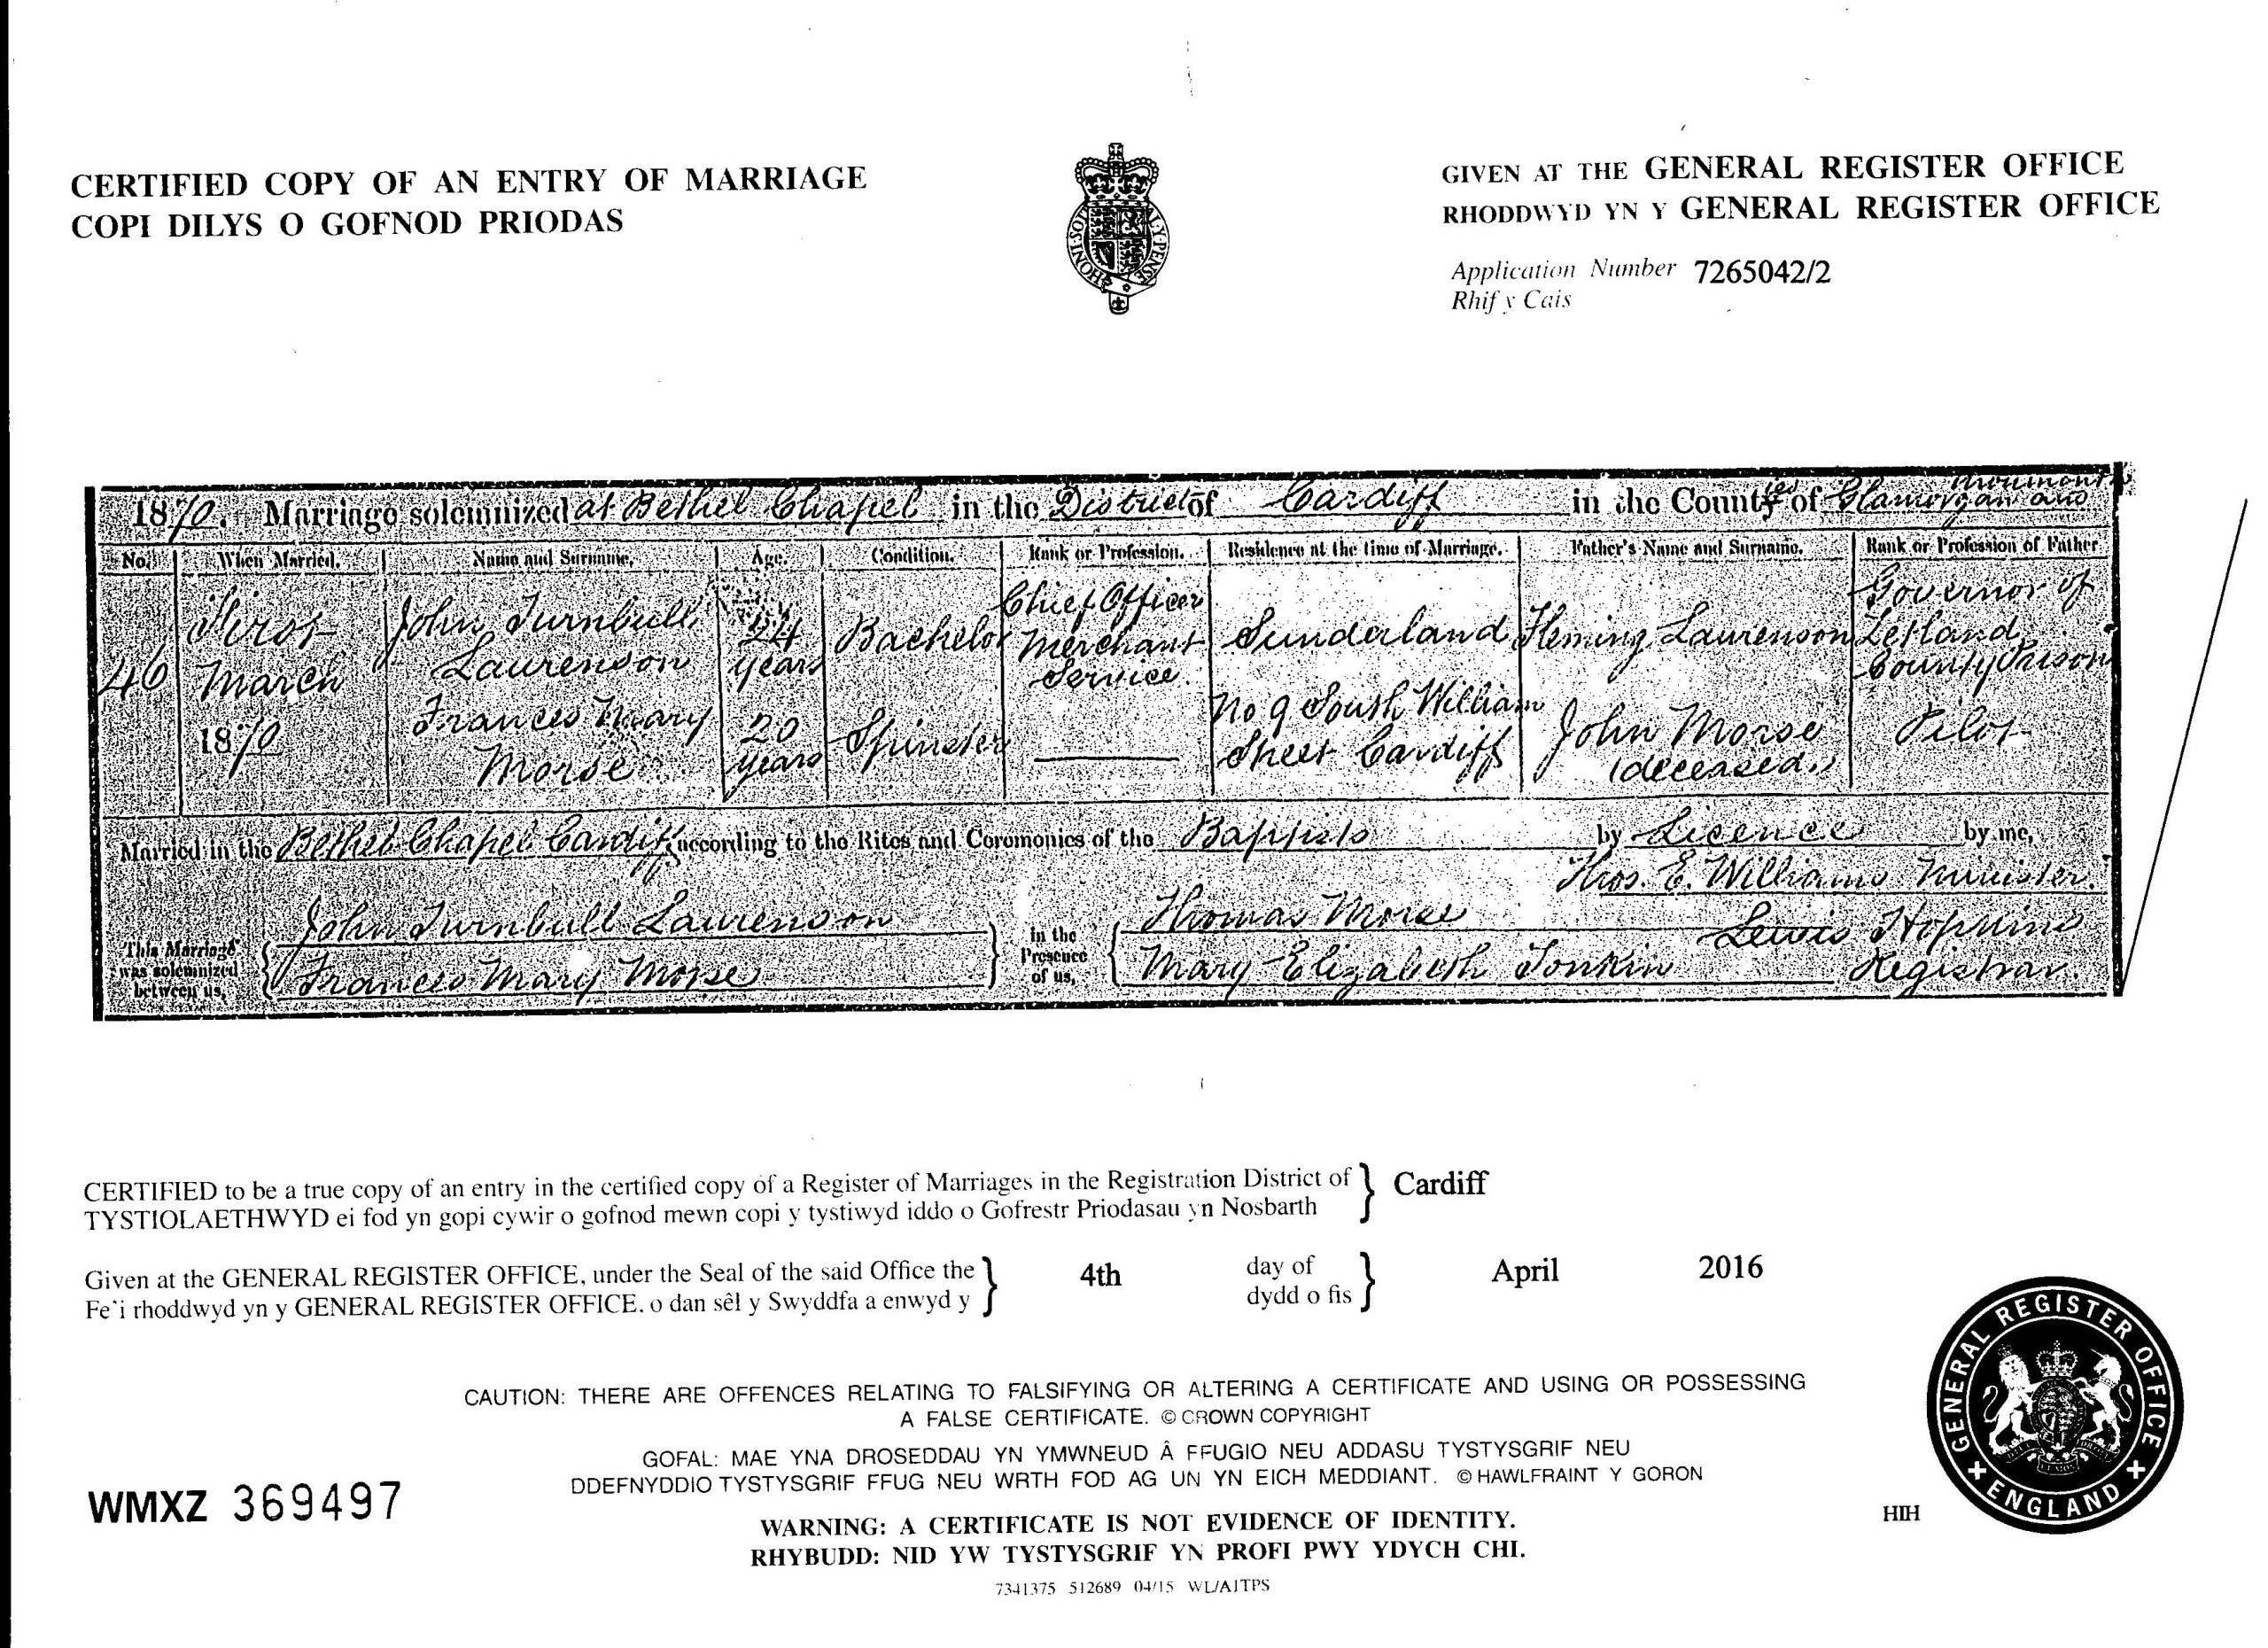 CERTIFIED COPY OF AN ENTRY OF MARRIAGE
COPI DILYS O GOFNOD PRIODAS
HONI·SOIT
AL·Y·PENSE
GIVEN AT THE GENERAL REGISTER OFFICE
RHODDWYD YN Y GENERAL REGISTER OFFICE
Application Number 7265042/2
Rhif y Cais
1870. Marriage solemnized at Bethel Chapel in the District of Cardiff in the Counties of Glamorgan and Monmouth
No. When Married. Name and Surname. Age. Condition. Rank or Profession. Residence at the time of Marriage. Father's Name and Surname. Rank or Profession of Father
46 First March 1870
John Turnbull Laurenson 24 years Bachelor Chief Officer Merchant Service. Sunderland Fleming Laurenson Governor of Zetland County Prison
Frances Mary Morse 20 years Spinster No 9 South William Street Cardiff John Morse (deceased.) Pilot
Married in the Bethel Chapel Cardiff according to the Rites and Ceremonies of the Baptists by Licence by me,
Thos. E. Williams Minister.
This Marriage was solemnized between us,
John Turnbull Laurenson
Frances Mary Morse
in the Presence of us,
Thomas Morse
Mary Elizabeth Tonkin
Lewis Hopkins
Registrar.
CERTIFIED to be a true copy of an entry in the certified copy of a Register of Marriages in the Registration District of } Cardiff
TYSTIOLAETHWYD ei fod yn gopi cywir o gofnod mewn copi y tystiwyd iddo o Gofrestr Priodasau yn Nosbarth
Given at the GENERAL REGISTER OFFICE, under the Seal of the said Office the } 4th day of } April 2016
Fe'i rhoddwyd yn y GENERAL REGISTER OFFICE. o dan sêl y Swyddfa a enwyd y dydd o fis
CAUTION: THERE ARE OFFENCES RELATING TO FALSIFYING OR ALTERING A CERTIFICATE AND USING OR POSSESSING
A FALSE CERTIFICATE. © CROWN COPYRIGHT
GOFAL: MAE YNA DROSEDDAU YN YMWNEUD Â FFUGIO NEU ADDASU TYSTYSGRIF NEU
DDEFNYDDIO TYSTYSGRIF FFUG NEU WRTH FOD AG UN YN EICH MEDDIANT. © HAWLFRAINT Y GORON
WMXZ 369497
WARNING: A CERTIFICATE IS NOT EVIDENCE OF IDENTITY.
RHYBUDD: NID YW TYSTYSGRIF YN PROFI PWY YDYCH CHI.
7341375 512689 04/15 WL/A1TPS
HIH
GENERAL REGISTER OFFICE
ENGLAND